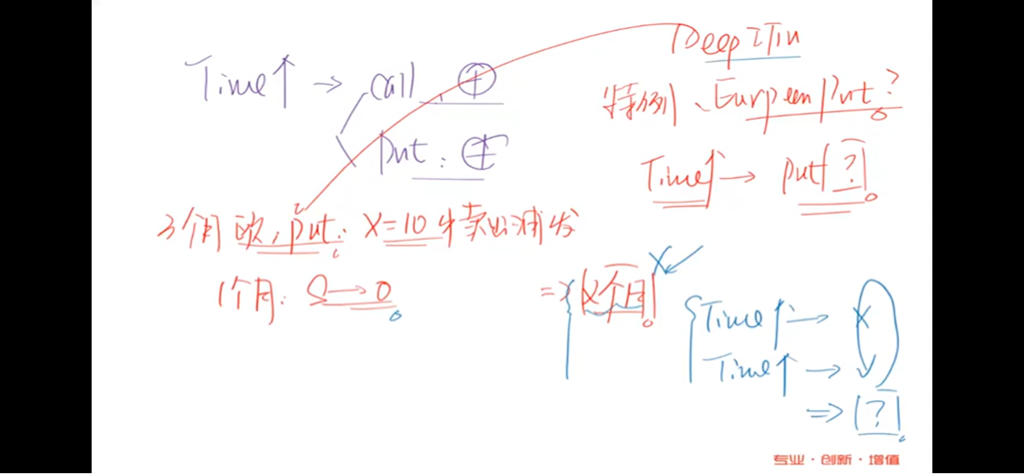 Time↑ → call: ⊕
put: ⊕
Deep ITM
特例、Eurpeen Put?
Time↑ → put ?
3个月 欧, put: X=10 卖出沙发
1个月: S→0
=> 2个月 X
Time↑ → X
Time↑ → ✓
=> ?
专业·创新·增值